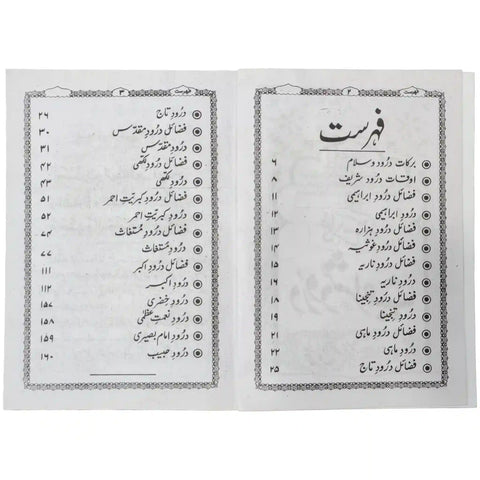 فہرست
۲
فہرست
برکات درود وسلام ۶
اوقات درود شریف ۸
فضائل درود ابراہیمی ۱۱
درود ابراہیمی ۱۲
فضائل درود ہزارہ ۱۳
فضائل درود غوثیہ ۱۴
فضائل درود ناریہ ۱۵
درود ناریہ ۱۶
فضائل درود تنجینا ۱۸
درود تنجینا ۱۹
فضائل درود ماہی ۲۱
درود ماہی ۲۲
فضائل درود تاج ۲۵
فہرست
۳
درود تاج ۲۶
فضائل درود مقدس ۳۰
درود مقدس ۳۱
فضائل درود لکھی ۴۲
درود لکھی ۴۳
فضائل درود کبریت احمر ۵۱
درود کبریت احمر ۵۲
فضائل درود مستغاث ۷۴
درود مستغاث ۷۷
فضائل درود اکبر ۱۱۱
درود اکبر ۱۱۲
درود خضری ۱۵۷
درود نعمت عظمٰی ۱۵۸
درود امام بصیری ۱۵۹
درود حبیب ۱۶۰